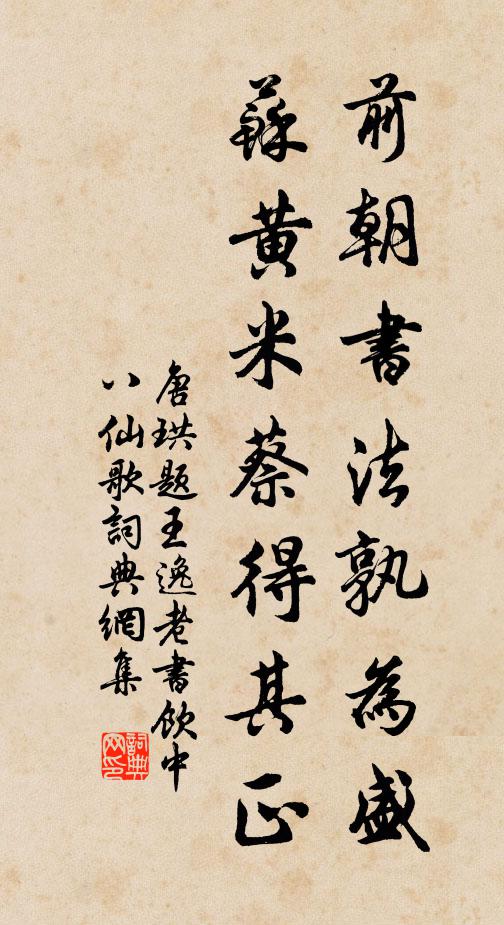 前朝書法孰為盛
蘇黄米蔡得其正
唐珙题王逸老書飲中
八仙歌詞典網集
詞典
网印